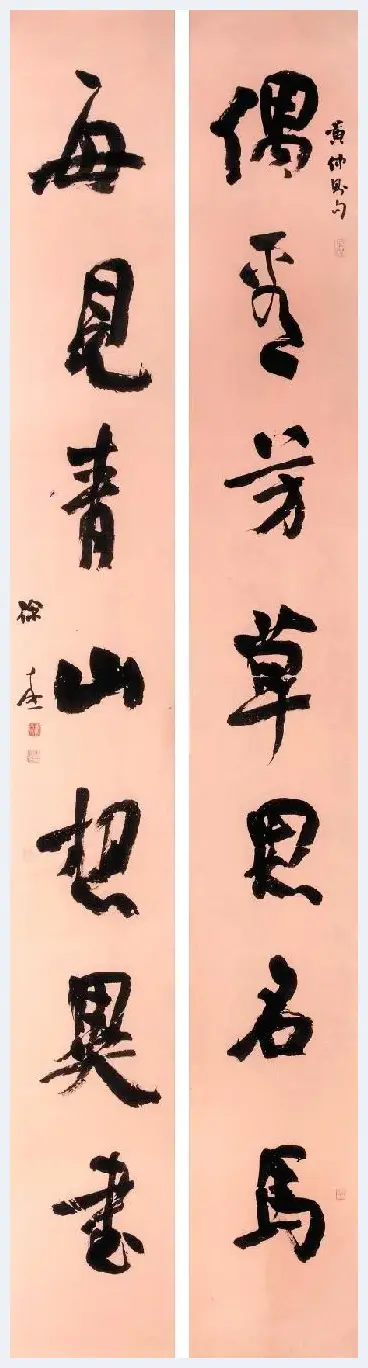 黃仲則句
偶看芳草思名馬
每見青山想異書